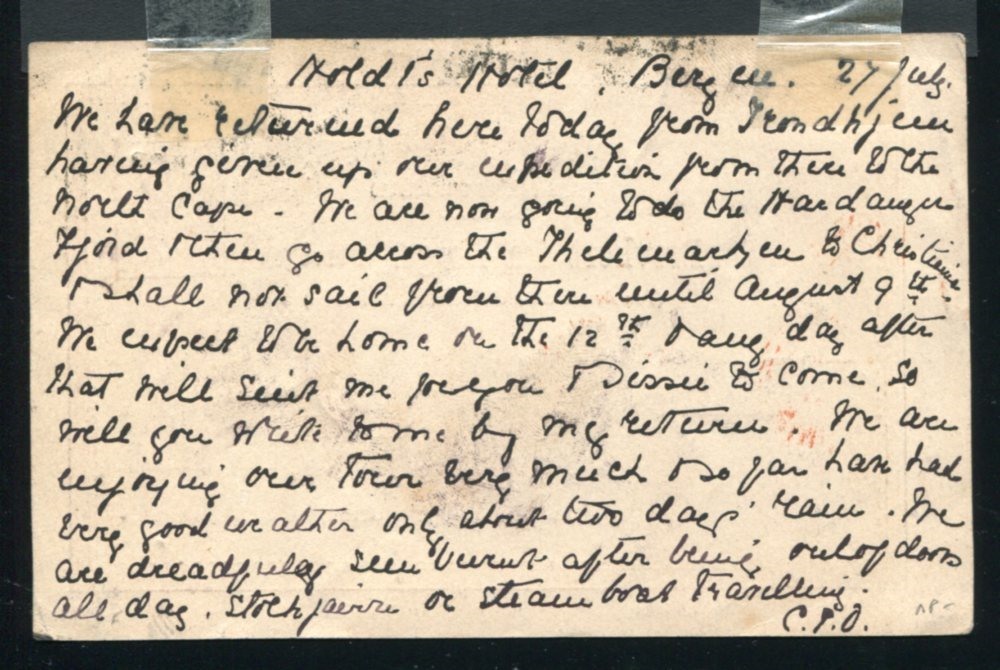 Holdt's Hotel, Bergen. 27 July.
We have returned here today from Trondhjem
having given up our expedition from there to the
North Cape - We are now going to do the Hardanger
Fjord & then go across the Thelemarken to Christiania
& shall not sail from there until August 9th.
We expect to be home on the 12th & any day after
that will suit me for you & Sissie to come, so
will you write to me by my return. We are
enjoying our tour very much & so far have had
very good weather only about two days' rain. We
are dreadfully sun burnt after being out of doors
all day. Stolkjærre or steam boat travelling.
C.P.O.